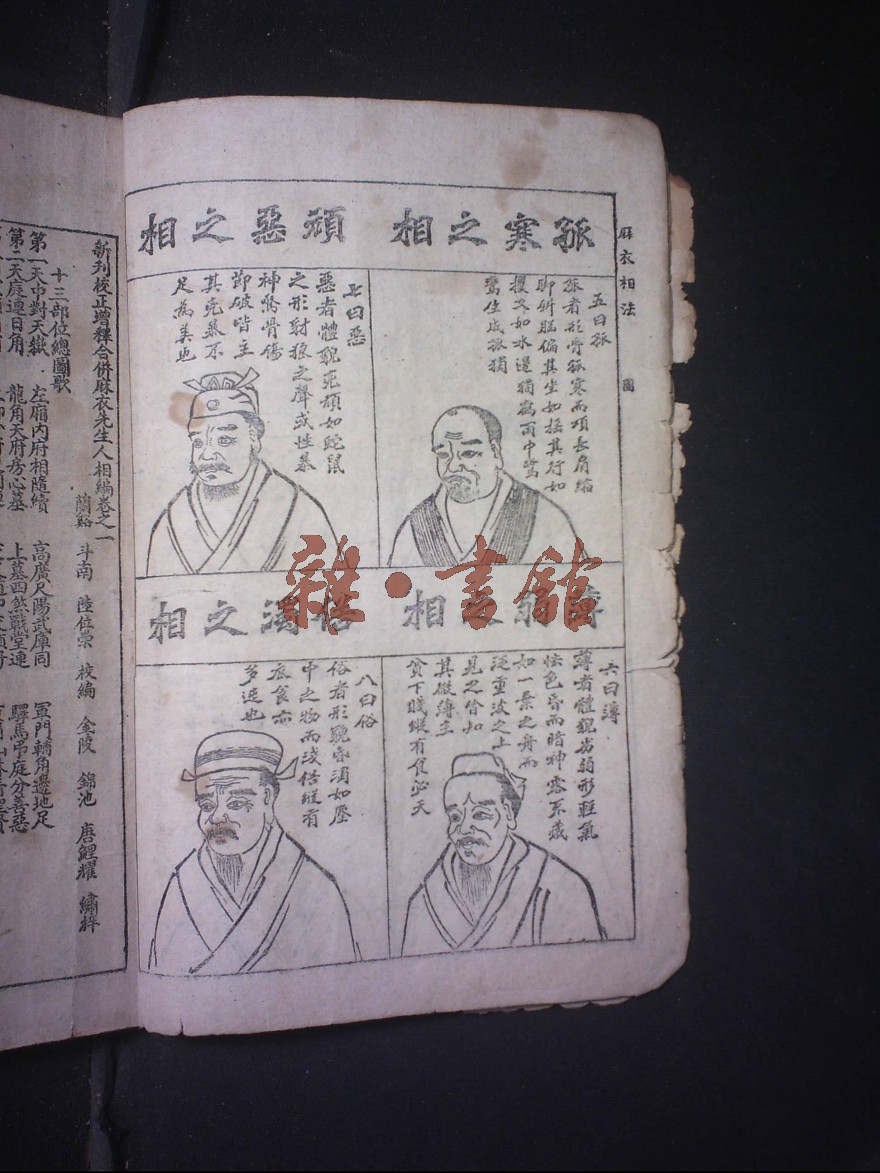 麻衣相法
圖
孤寒之相
五曰孤
孤者形骨孤寒而項長肩縮
脚斜腦偏其坐如搖其行如
攫又如水邊獨鶴雨中鷺
鷥生成孤獨
頑惡之相
七曰惡
惡者體貌兇頑如蛇鼠
之形豺狼之聲或性暴
神驚骨傷
節破皆主
其兇暴不
足為美也
薄弱之相
六曰薄
薄者體貌劣弱形輕氣
怯色昏而暗神露不藏
如一葉之舟而
泛重波之上
見之皆知
其微薄主
貧下賤縱有食必夭
俗濁之相
八曰俗
俗者形貌昏濁如塵
中之物而淺俗縱有
衣食亦
多迍也
雜·書館
新刊校正增釋合併麻衣先生人相編卷之一
蘭谿 斗南 陸位崇 校編 金陵 錦池 唐鯉耀 繡梓
十三部位總圖歌
第一天中對天嶽 左廂內府相隨續 高廣尺陽武庫同 軍門輔角邊地足
第二天庭連日角 龍角天府房心墓 上墓四煞戰堂連 驛馬弔庭分善惡